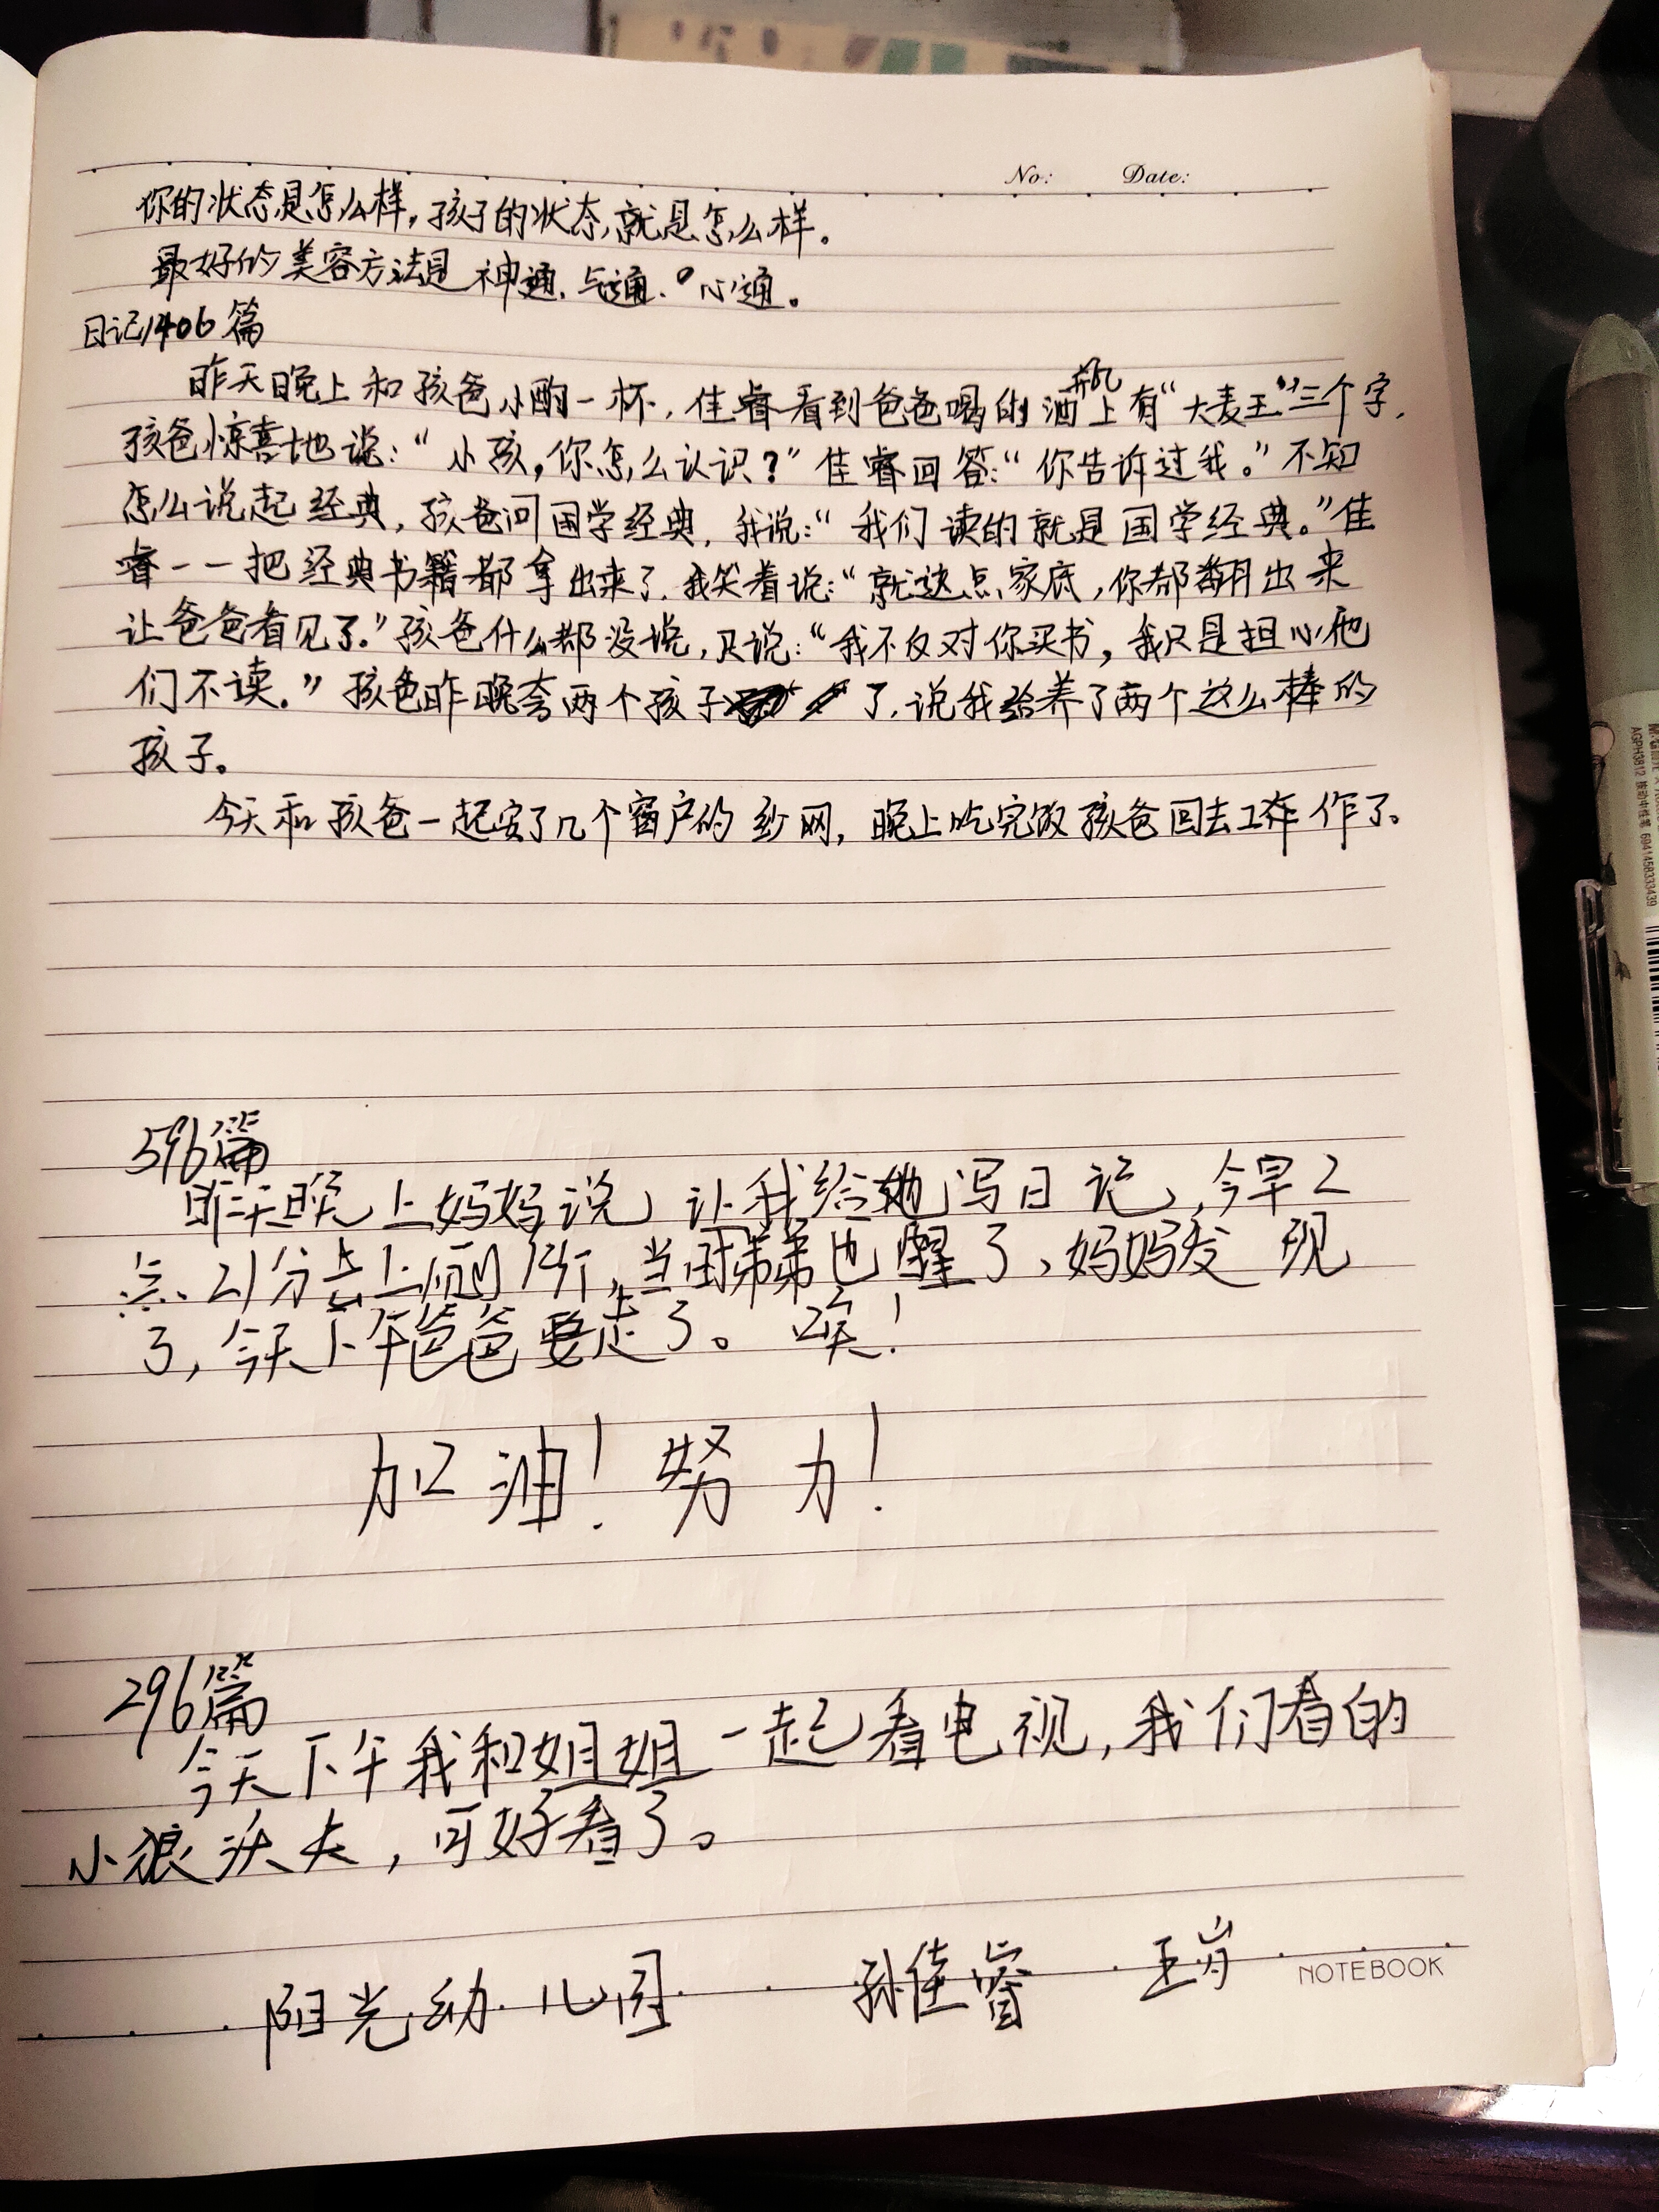 No: Date:
你的状态是怎么样，孩子的状态就是怎么样。
最好的美容方法是神通、气通、心通。
日记1406篇
昨天晚上和孩爸小酌一杯，佳睿看到爸爸喝的酒瓶上有“大麦王”三个字，
孩爸惊喜地说：“小孩，你怎么认识？”佳睿回答：“你告诉过我。”不知
怎么说起经典，孩爸问国学经典，我说：“我们读的就是国学经典。”佳
睿一一把经典书籍都拿出来了，我笑着说：“就这点家底，你都翻出来
让爸爸看见了。”孩爸什么都没说，只说：“我不反对你买书，我只是担心他
们不读。”孩爸昨晚夸两个孩子了，说我给养了两个这么棒的
孩子。
今天和孩爸一起安了几个窗户的纱网，晚上吃完饭孩爸回去工作了。
596篇
昨天晚上妈妈说，让我给她写日记，今早2
点21分去上厕所，当时弟弟也醒了，妈妈发现
了，今天下午爸爸要走了。唉！
加油！努力！
296篇
今天下午我和姐姐一起看电视，我们看的
小狼沃夫，可好看了。
阳光幼儿园 孙佳睿 王岁
NOTEBOOK
AGPH3812 按动中性笔 6941458333439